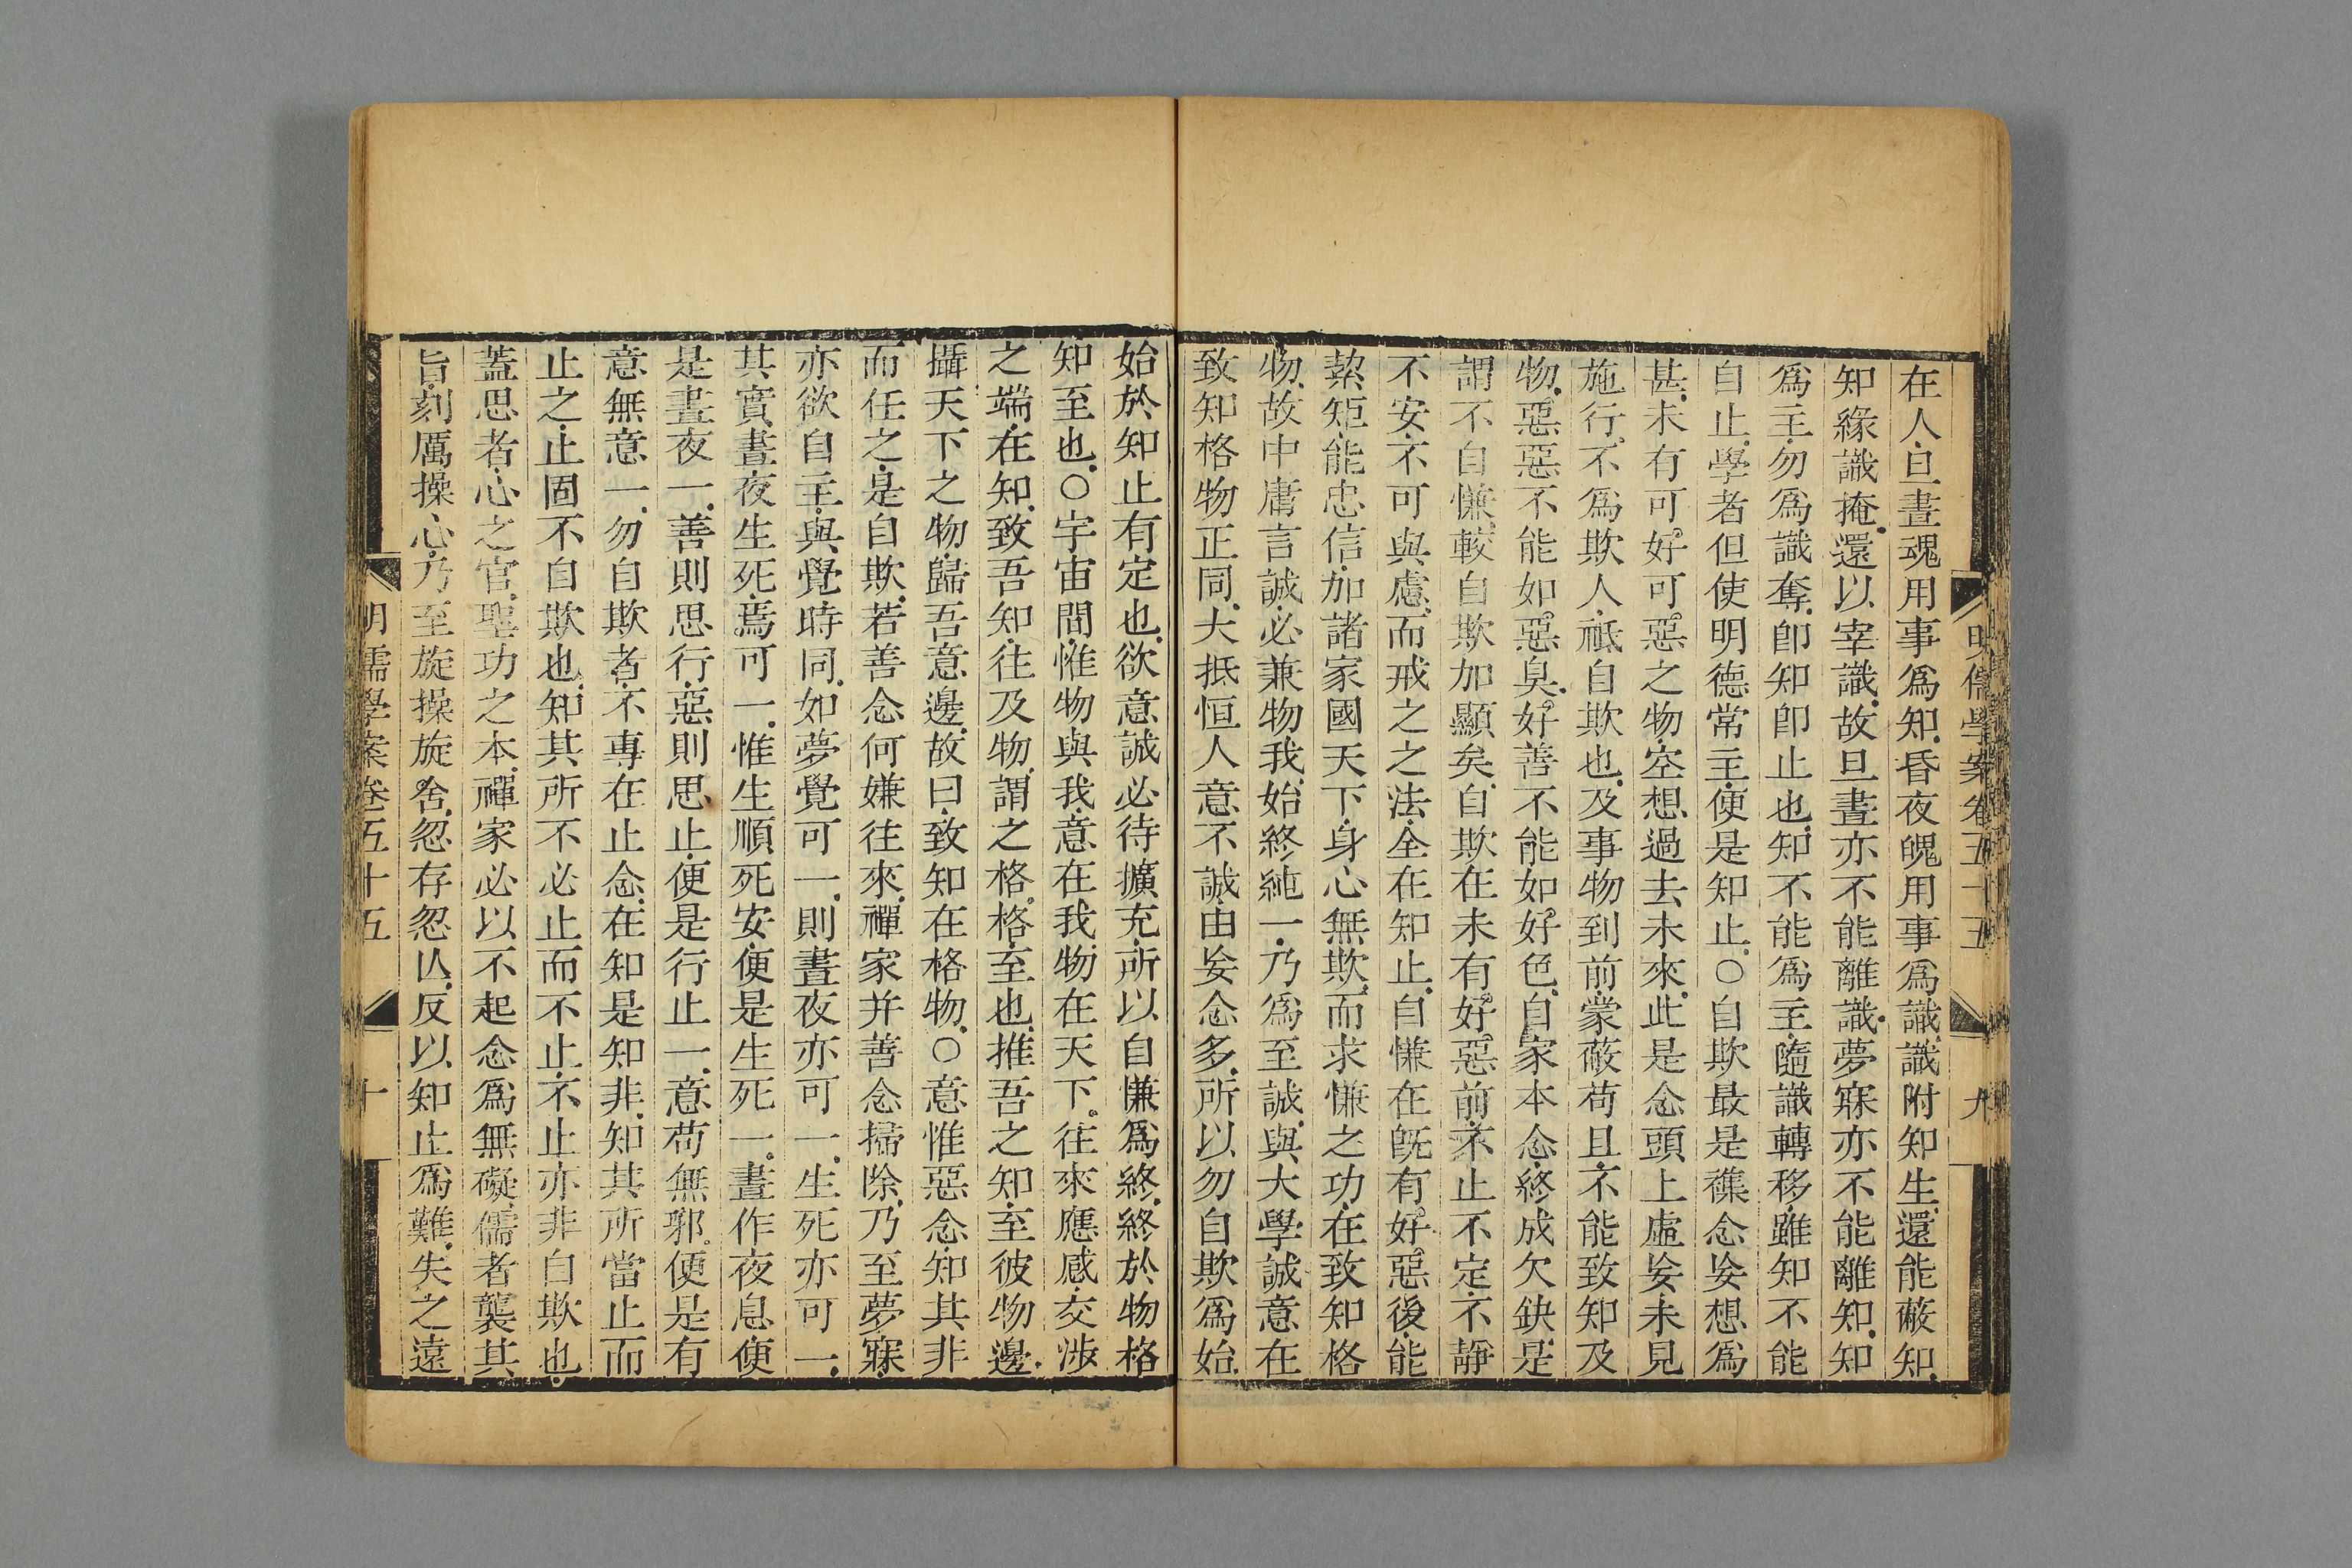 明儒學案卷五十五 九
在人旦晝魂用事爲知昏夜魄用事爲識識附知生還能蔽知
知緣識掩還以宰識故旦晝亦不能離識夢寐亦不能離知知
爲主勿爲識奪卽知卽止也知不能爲主隨識轉移雖知不能
自止學者但使明德常主便是知止○自欺最是襍念妄想爲
甚未有可好可惡之物空想過去未來此是念頭上虛妄未見
施行不爲欺人祗自欺也及事物到前蒙蔽苟且不能致知及
物惡惡不能如惡臭好善不能如好色自家本念終成欠缺是
謂不自慊較自欺加顯矣自欺在未有好惡前不止不定不靜
不安不可與慮而戒之之法全在知止自慊在旣有好惡後能
絜矩能忠信加諸家國天下身心無欺而求慊之功在致知格
物故中庸言誠必兼物我始終純一乃爲至誠與大學誠意在
致知格物正同大抵恒人意不誠由妄念多所以勿自欺爲始
始於知止有定也欲意誠必待擴充所以自慊爲終終於物格
知至也○宇宙間惟物與我意在我物在天下往來應感交涉
之端在知致吾知往及物謂之格格至也推吾之知至彼物邊
攝天下之物歸吾意邊故曰致知在格物○意惟惡念知其非
而任之是自欺若善念何嫌往來禪家并善念掃除乃至夢寐
亦欲自主與覺時同如夢覺可一則晝夜亦可一生死亦可一
其實晝夜生死焉可一惟生順死安便是生死一晝作夜息便
是晝夜一善則思行惡則思止便是行止一意苟無邪便是有
意無意一勿自欺者不專在止念在知是知非知其所當止而
止之止固不自欺也知其所不必止而不止不止亦非自欺也
蓋思者心之官聖功之本禪家必以不起念爲無礙儒者襲其
旨刻厲操心乃至旋操旋舍忽存忽亾反以知止爲難失之遠
明儒學案卷五十五 十